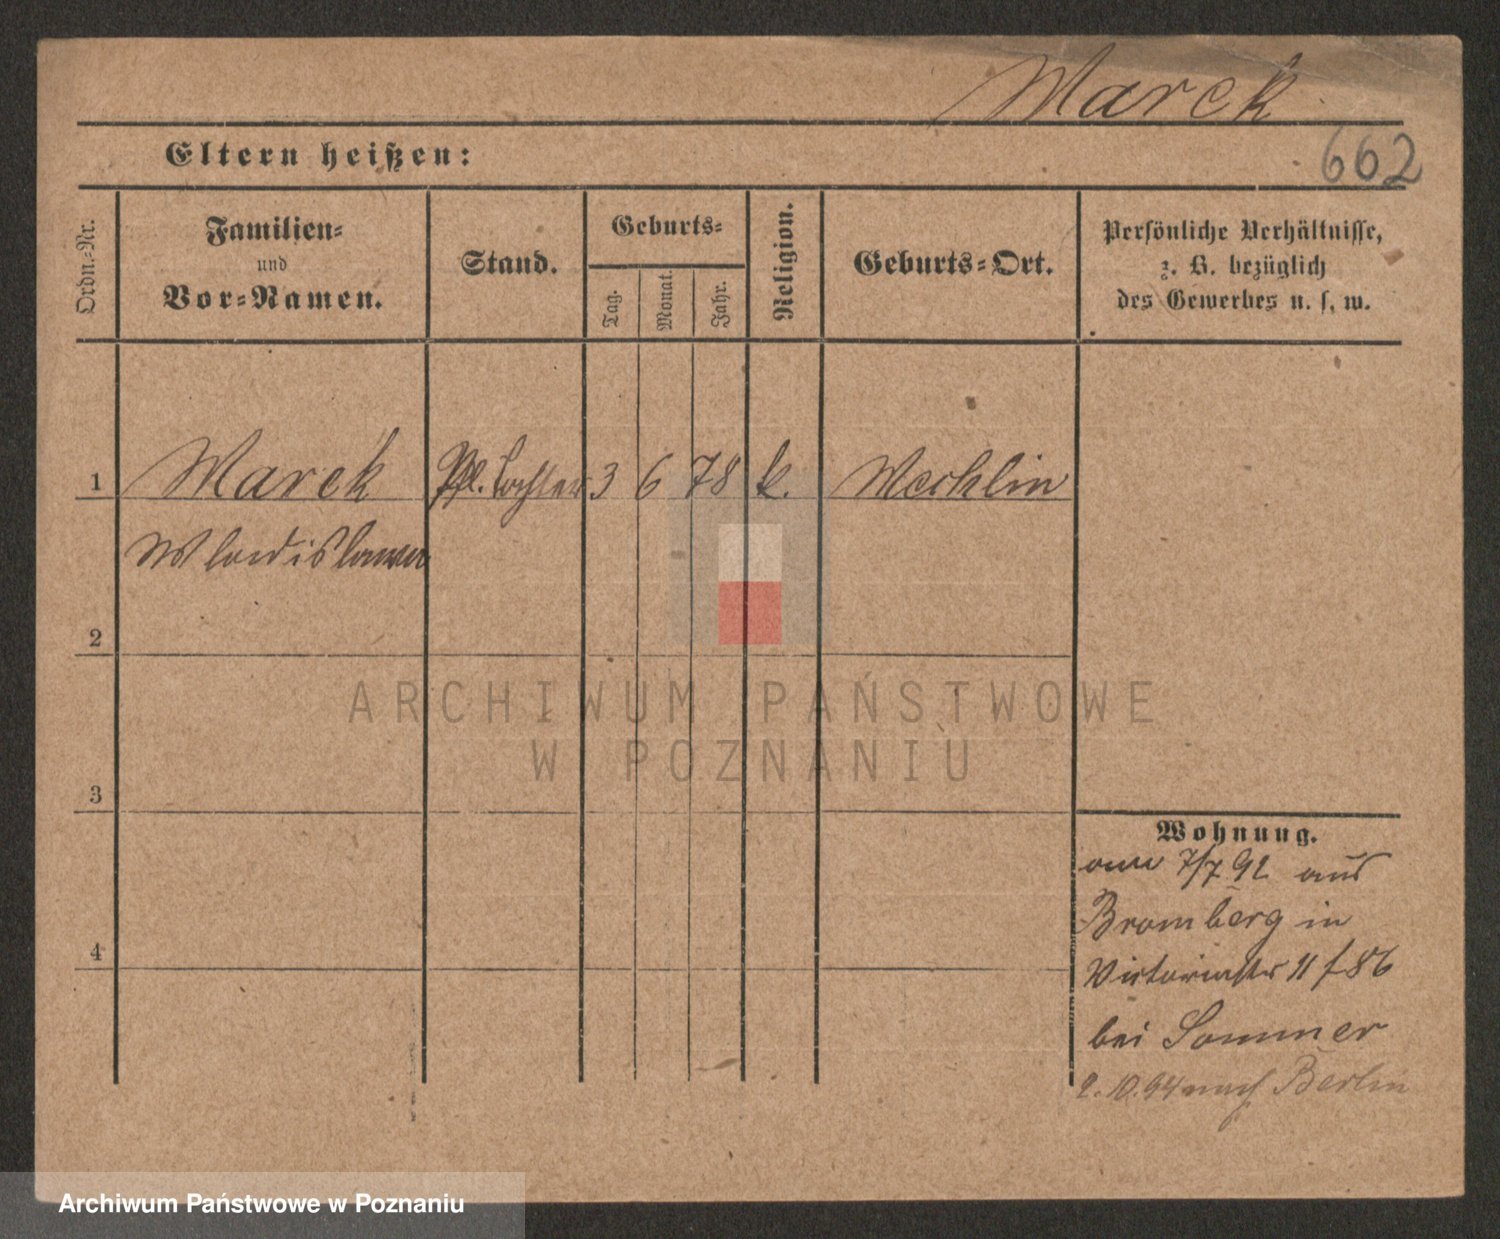 Marek
Eltern heißen:
662
Ordn.-Nr.
Familien-
und
Vor-Namen.
Stand.
Geburts-
Tag.
Monat.
Jahr.
Religion.
Geburts-Ort.
Persönliche Verhältnisse,
z. B. bezüglich
des Gewerbes u. s. w.
1 Marek Pfl. Tochter 3 6 78 k. Mechlin
Wladislawa
2
3
4
Wohnung.
am 7/7 92 aus
Bromberg in
Victoriastr 11 f 86
bei Sommer
2.10.94 nach Berlin
ARCHIWUM PAŃSTWOWE
W POZNANIU
Archiwum Państwowe w Poznaniu